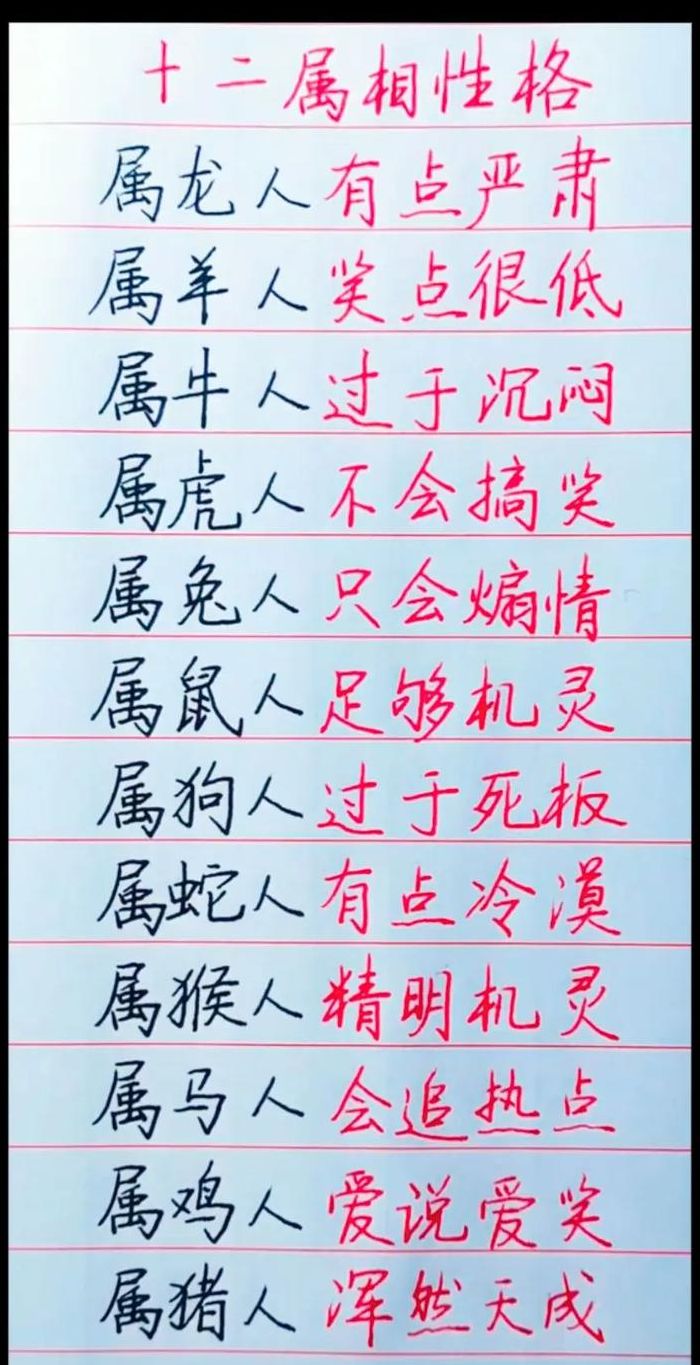 十二属相性格
属龙人有点严肃
属羊人笑点很低
属牛人过于沉闷
属虎人不会搞笑
属兔人只会煽情
属鼠人足够机灵
属狗人过于死板
属蛇人有点冷漠
属猴人精明机灵
属马人会追热点
属鸡人爱说爱笑
属猪人浑然天成